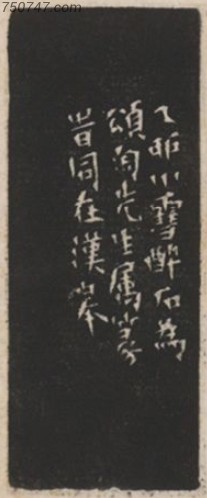 750747.com
乙卯小雪醉石為
頌先生属篆
旹同在漢皋